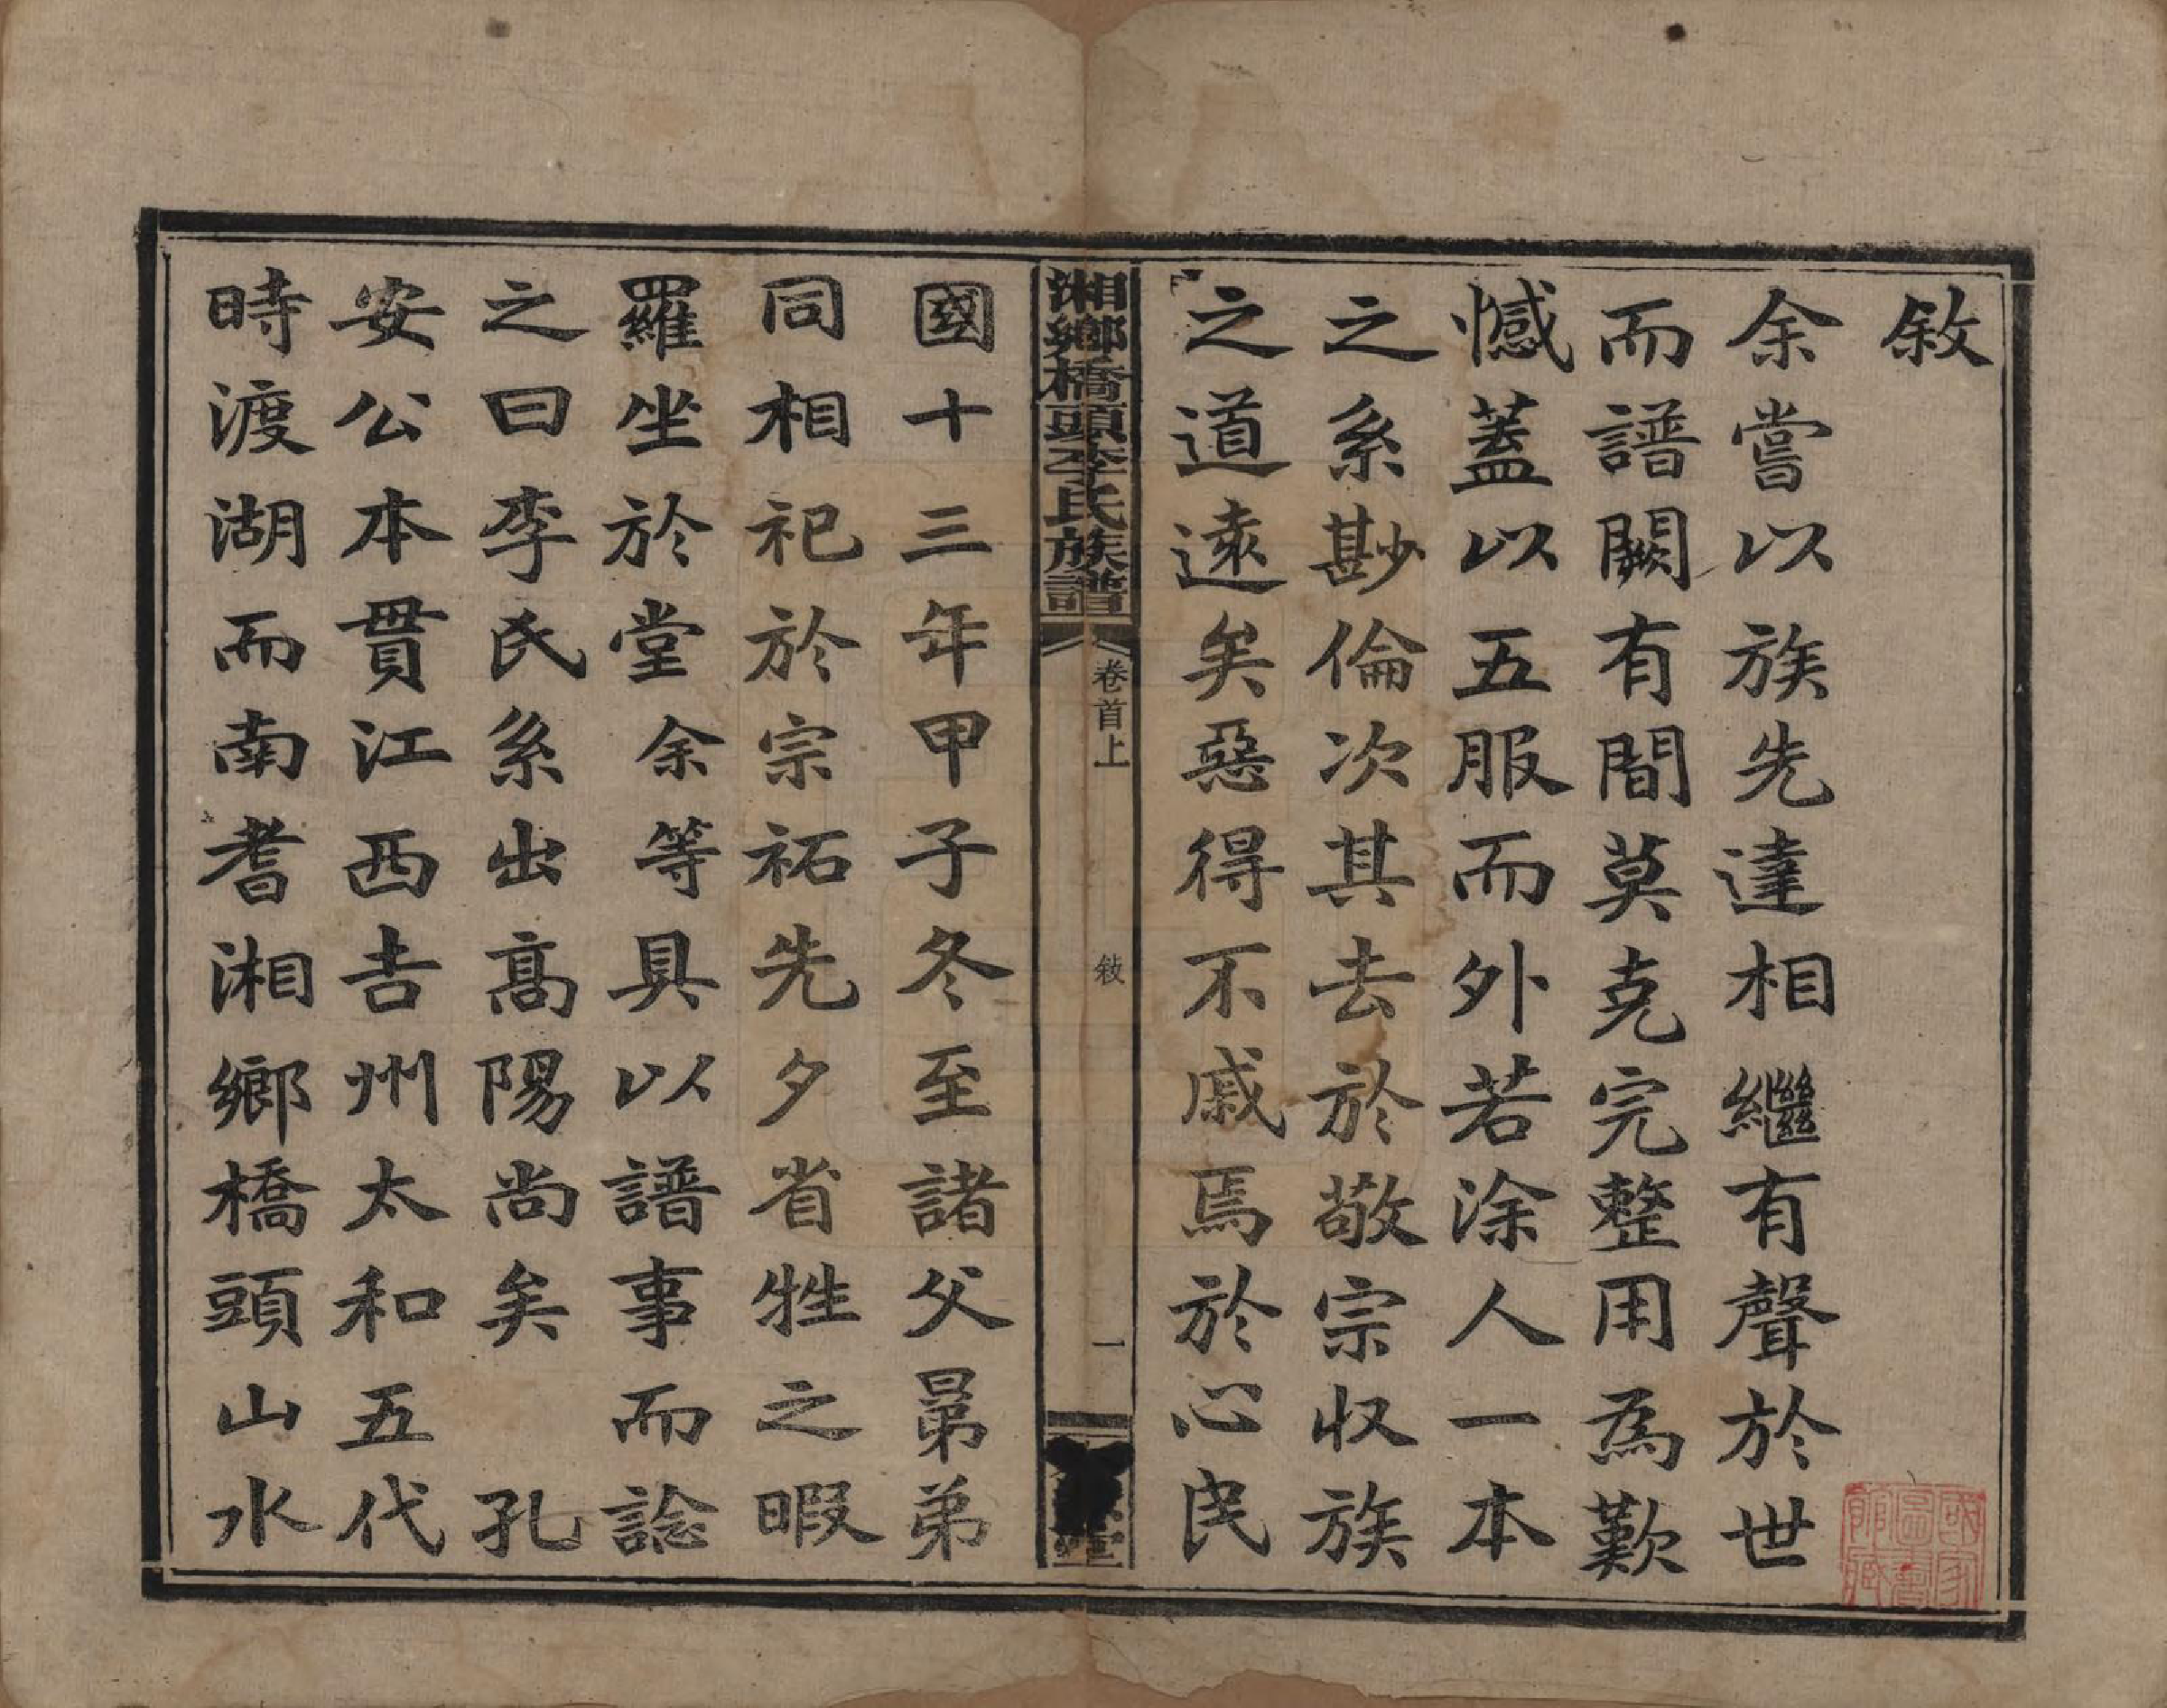 敘
余嘗以族先達相繼有聲於世
而譜闕有間莫克完整用為歎
憾蓋以五服而外若涂人一本
之系尠倫次其去於敬宗收族
之道遠矣惡得不戚焉於心民
湘鄉橋頭李氏族譜
卷首上
敘
一
堂
國十三年甲子冬至諸父晜弟
同相祀於宗祏先夕省牲之暇
羅坐於堂余等具以譜事而諗
之曰李氏系出高陽尚矣 孔
安公本貫江西吉州太和五代
時渡湖而南耆湘鄉橋頭山水
國家圖書館藏